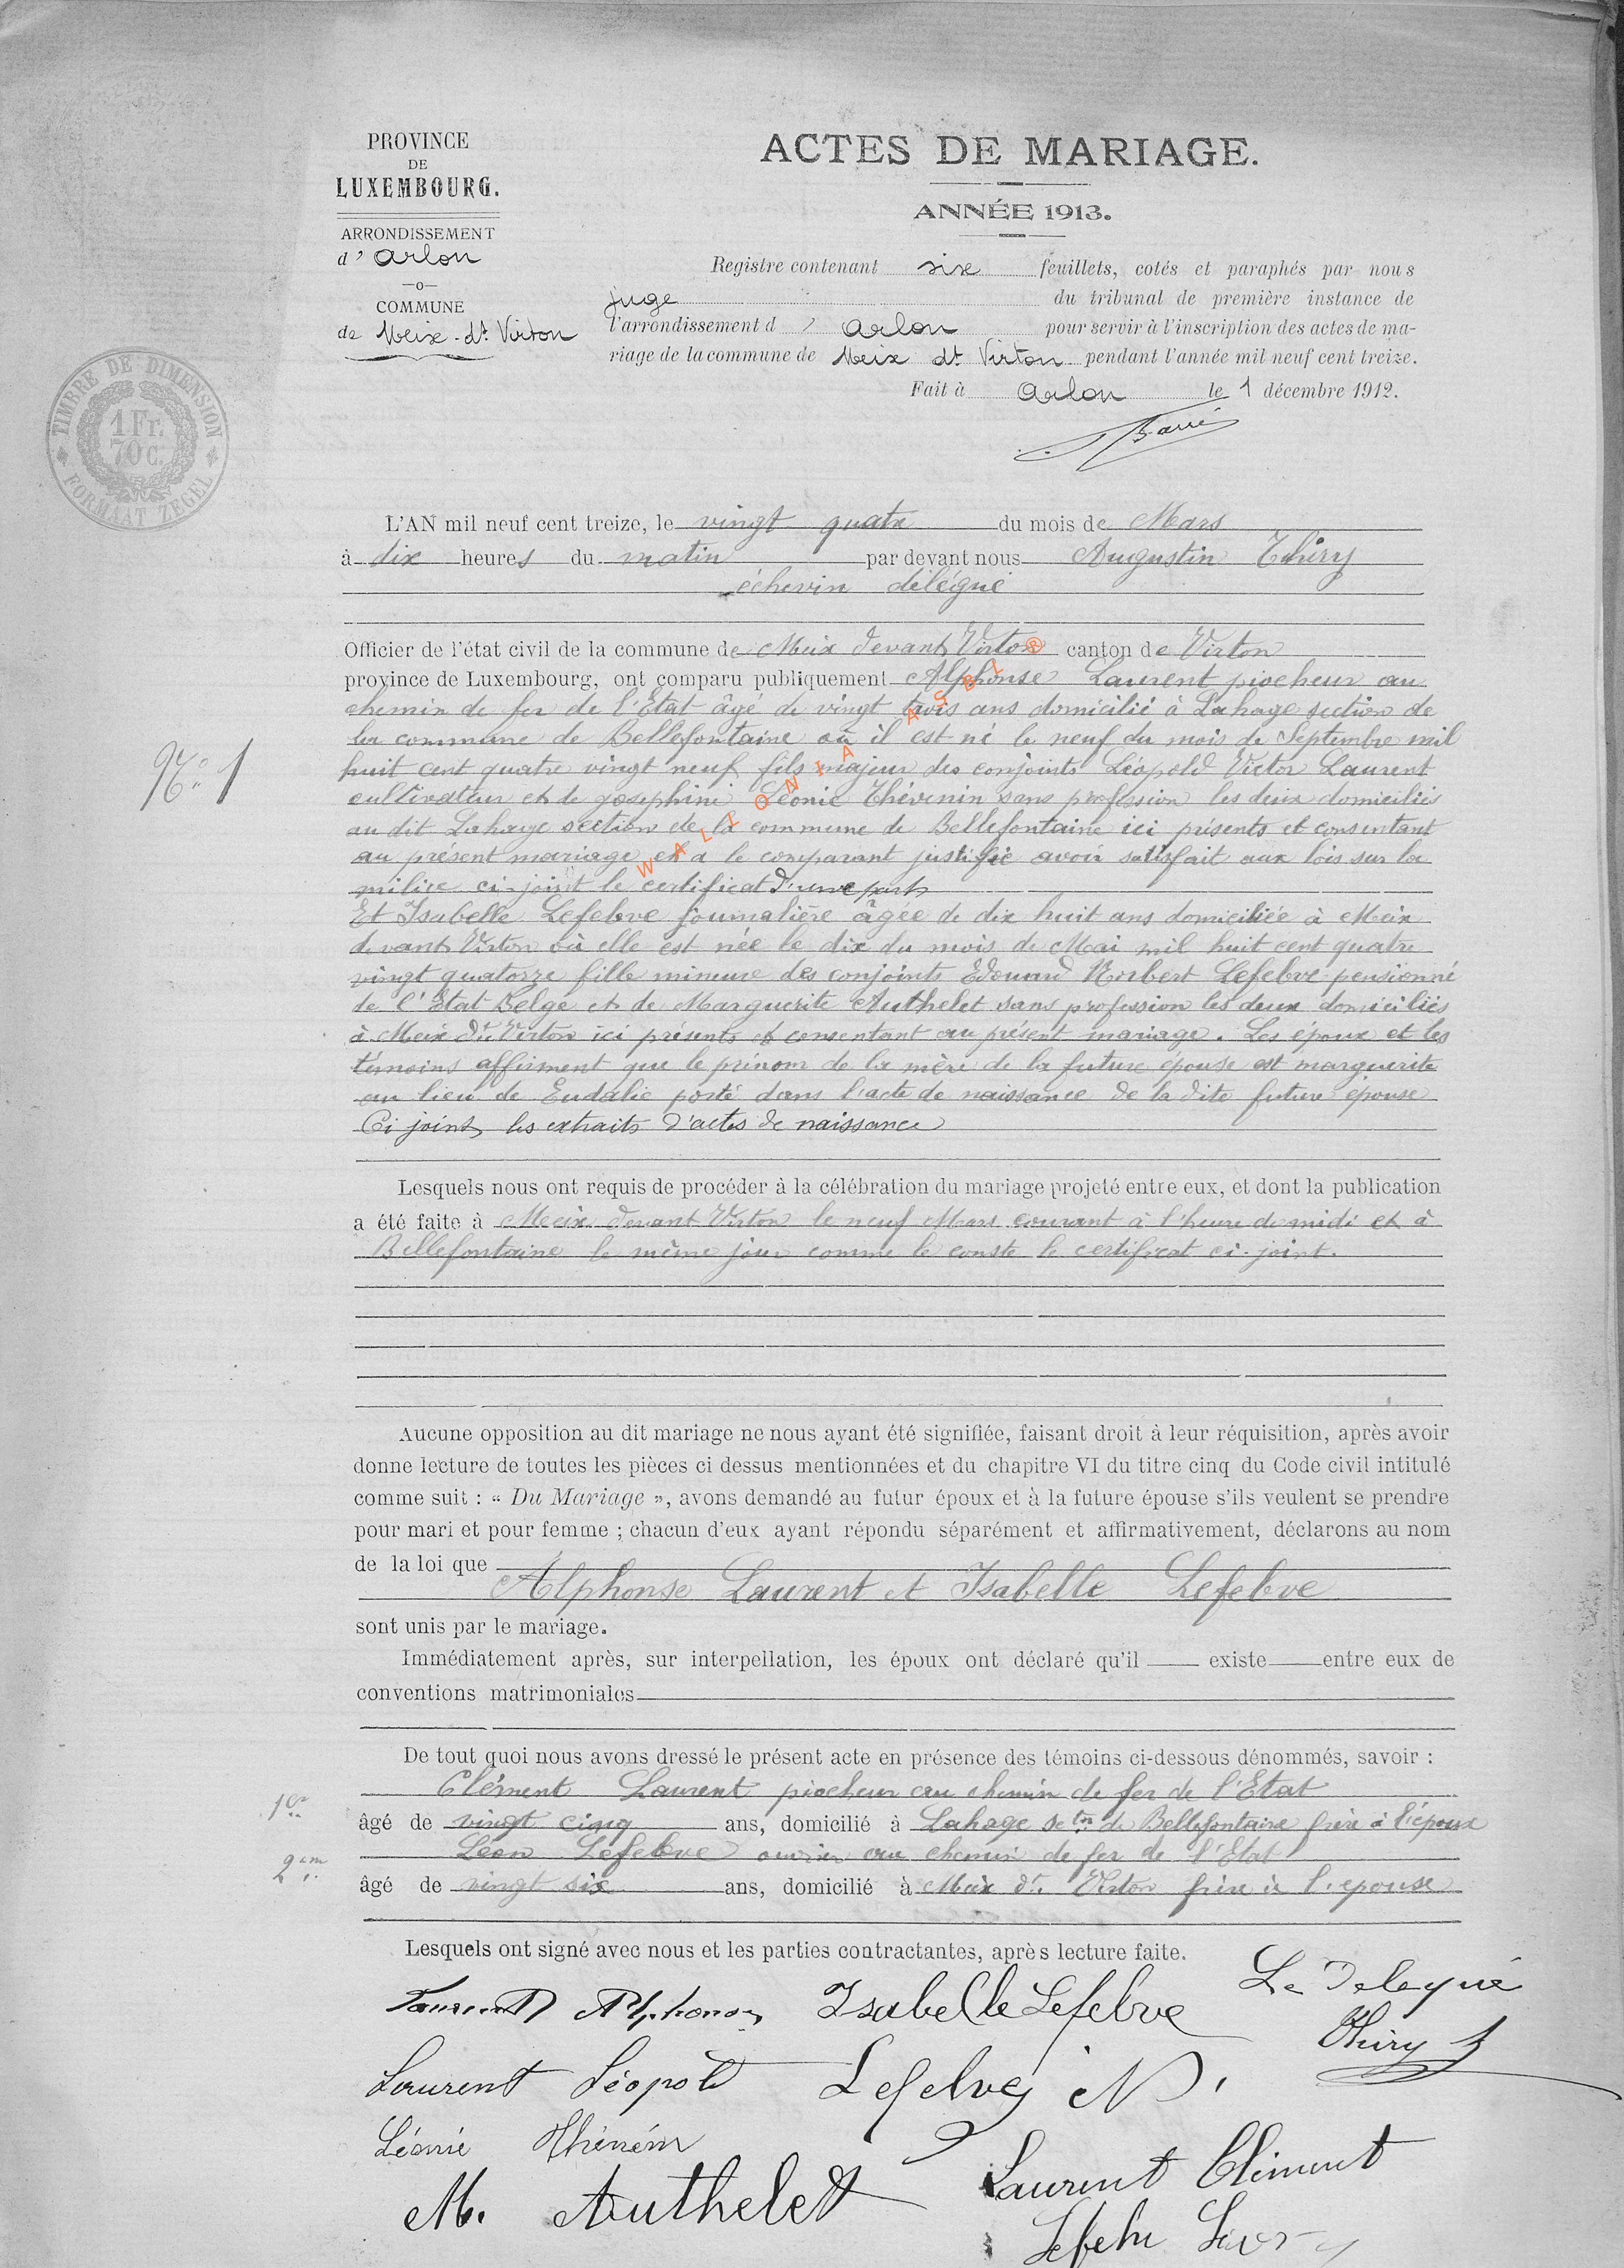 PROVINCE
DE
LUXEMBOURG.
ARRONDISSEMENT
d' Arlon
—o—
COMMUNE
de Meix-dt Virton
TIMBRE DE DIMENSION
1 Fr.
70 C.
FORMAAT ZEGEL
ACTES DE MARIAGE.
ANNÉE 1913.
Registre contenant six feuillets, cotés et paraphés par nous
juge du tribunal de première instance de
l'arrondissement d' Arlon pour servir à l'inscription des actes de ma-
riage de la commune de Meix dt Virton pendant l'année mil neuf cent treize.
Fait à Arlon le 1 décembre 1912.
L'AN mil neuf cent treize, le vingt quatre du mois de Mars
à dix heures du matin par devant nous Augustin Thiry
échevin délégué
Officier de l'état civil de la commune de Meix devant Virton canton de Virton
province de Luxembourg, ont comparu publiquement Alphonse Laurent piocheur au
chemin de fer de l'Etat âgé de vingt trois ans domicilié à Lahage section de
la commune de Bellefontaine où il est né le neuf du mois de Septembre mil
N° 1
huit cent quatre vingt neuf fils majeur des conjoints Léopold Victor Laurent
cultivateur et de Joséphine Léonie Thévenin sans profession les deux domiciliés
au dit Lahage section de la commune de Bellefontaine ici présents et consentant
au présent mariage et a le comparant justifié avoir satisfait aux lois sur la
milice ci-joint le certificat d'une part
WALLONIA ASBL ®
Et Isabelle Lefebve journalière âgée de dix huit ans domiciliée à Meix
devant Virton où elle est née le dix du mois de Mai mil huit cent quatre
vingt quatorze fille mineure des conjoints Edouard Norbert Lefebve pensionné
de l'Etat Belge et de Marguerite Authelet sans profession les deux domiciliés
à Meix dt Virton ici présents et consentant au présent mariage. Les époux et les
témoins affirment que le prénom de la mère de la future épouse est marguerite
au lieu de Eudalie porté dans l'acte de naissance de la dite future épouse
Ci joint les extraits d'actes de naissance
Lesquels nous ont requis de procéder à la célébration du mariage projeté entre eux, et dont la publication
a été faite à Meix devant Virton le neuf Mars courant à l'heure de midi et à
Bellefontaine le même jour comme le conste le certificat ci-joint.
Aucune opposition au dit mariage ne nous ayant été signifiée, faisant droit à leur réquisition, après avoir
donne lecture de toutes les pièces ci dessus mentionnées et du chapitre VI du titre cinq du Code civil intitulé
comme suit : « Du Mariage », avons demandé au futur époux et à la future épouse s'ils veulent se prendre
pour mari et pour femme ; chacun d'eux ayant répondu séparément et affirmativement, déclarons au nom
de la loi que
Alphonse Laurent et Isabelle Lefebve
sont unis par le mariage.
Immédiatement après, sur interpellation, les époux ont déclaré qu'il existe entre eux de
conventions matrimoniales
De tout quoi nous avons dressé le présent acte en présence des témoins ci-dessous dénommés, savoir :
1er Clément Laurent piocheur au chemin de fer de l'Etat
âgé de vingt cinq ans, domicilié à Lahage son de Bellefontaine frère à l'époux
2em Léon Lefebve ouvrier au chemin de fer de l'Etat
âgé de vingt six ans, domicilié à Meix dt Virton frère à l'épouse
Lesquels ont signé avec nous et les parties contractantes, après lecture faite.
Laurent Alphonse Isabelle Lefebve Le Délegué
Thiry
Laurent Léopold Lefebve N.
Léonie Thévenin
M. Authelet Laurent Clément
Lefebve Léon